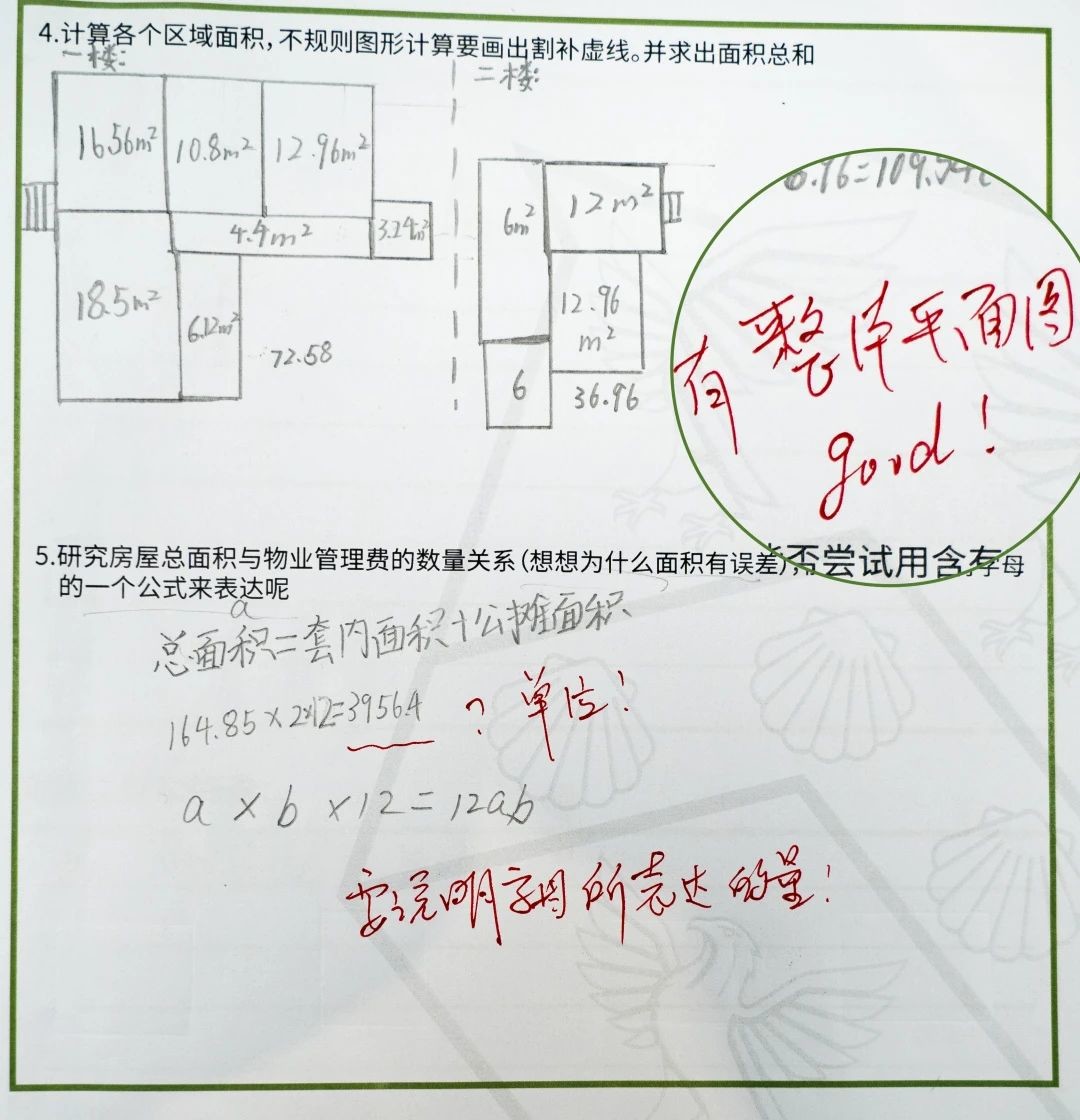 4.计算各个区域面积,不规则图形计算要画出割补虚线。并求出面积总和
一楼:
二楼:
16.56m²
10.8m²
12.96m²
4.4m²
3.24m²
18.5m²
6.12m²
72.58
6m²
12m²
12.96
m²
6
36.96
有整体平面图
good!
5.研究房屋总面积与物业管理费的数量关系(想想为什么面积有误差),否尝试用含有字母
的一个公式来表达呢
a
总面积=套内面积+公摊面积
164.85×2×12=3956.4
?单位!
a×b×12=12ab
要说明字母所表达的量!